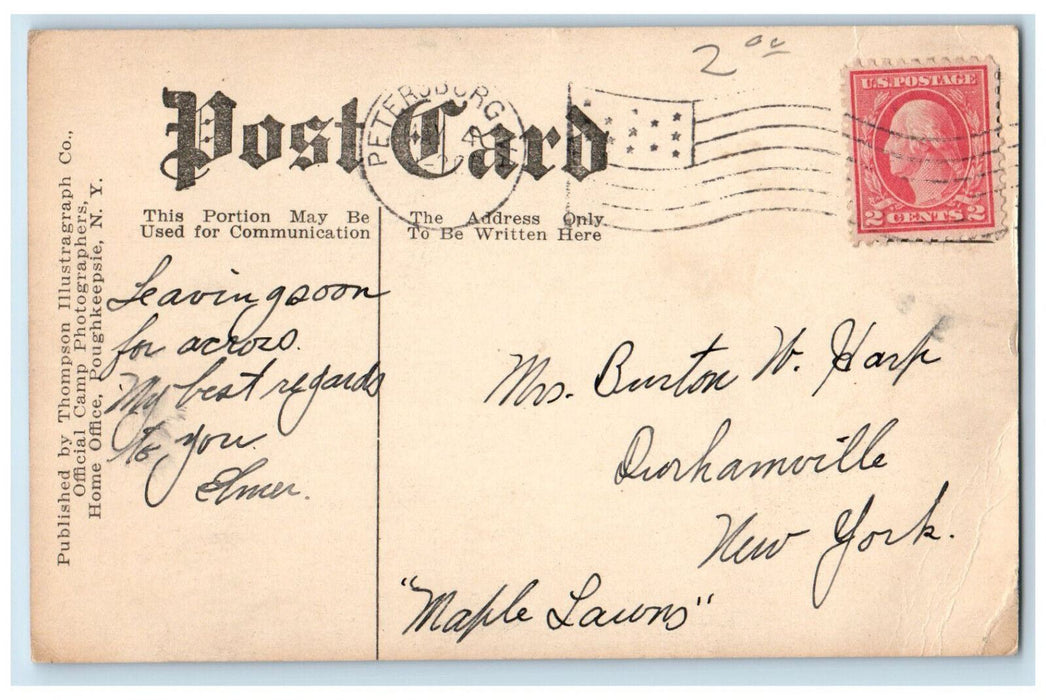 2 00
Post Card
PETERSBURG
U.S. POSTAGE
2 CENTS 2
Published by Thompson Illustragraph Co.,
Official Camp Photographers,
Home Office, Poughkeepsie, N. Y.
This Portion May Be
Used for Communication
The Address Only
To Be Written Here
Leaving soon
for across.
My best regards
to you.
Elmer.
Mrs. Burton W. Harp
Durhamville
New York.
"Maple Lawns"